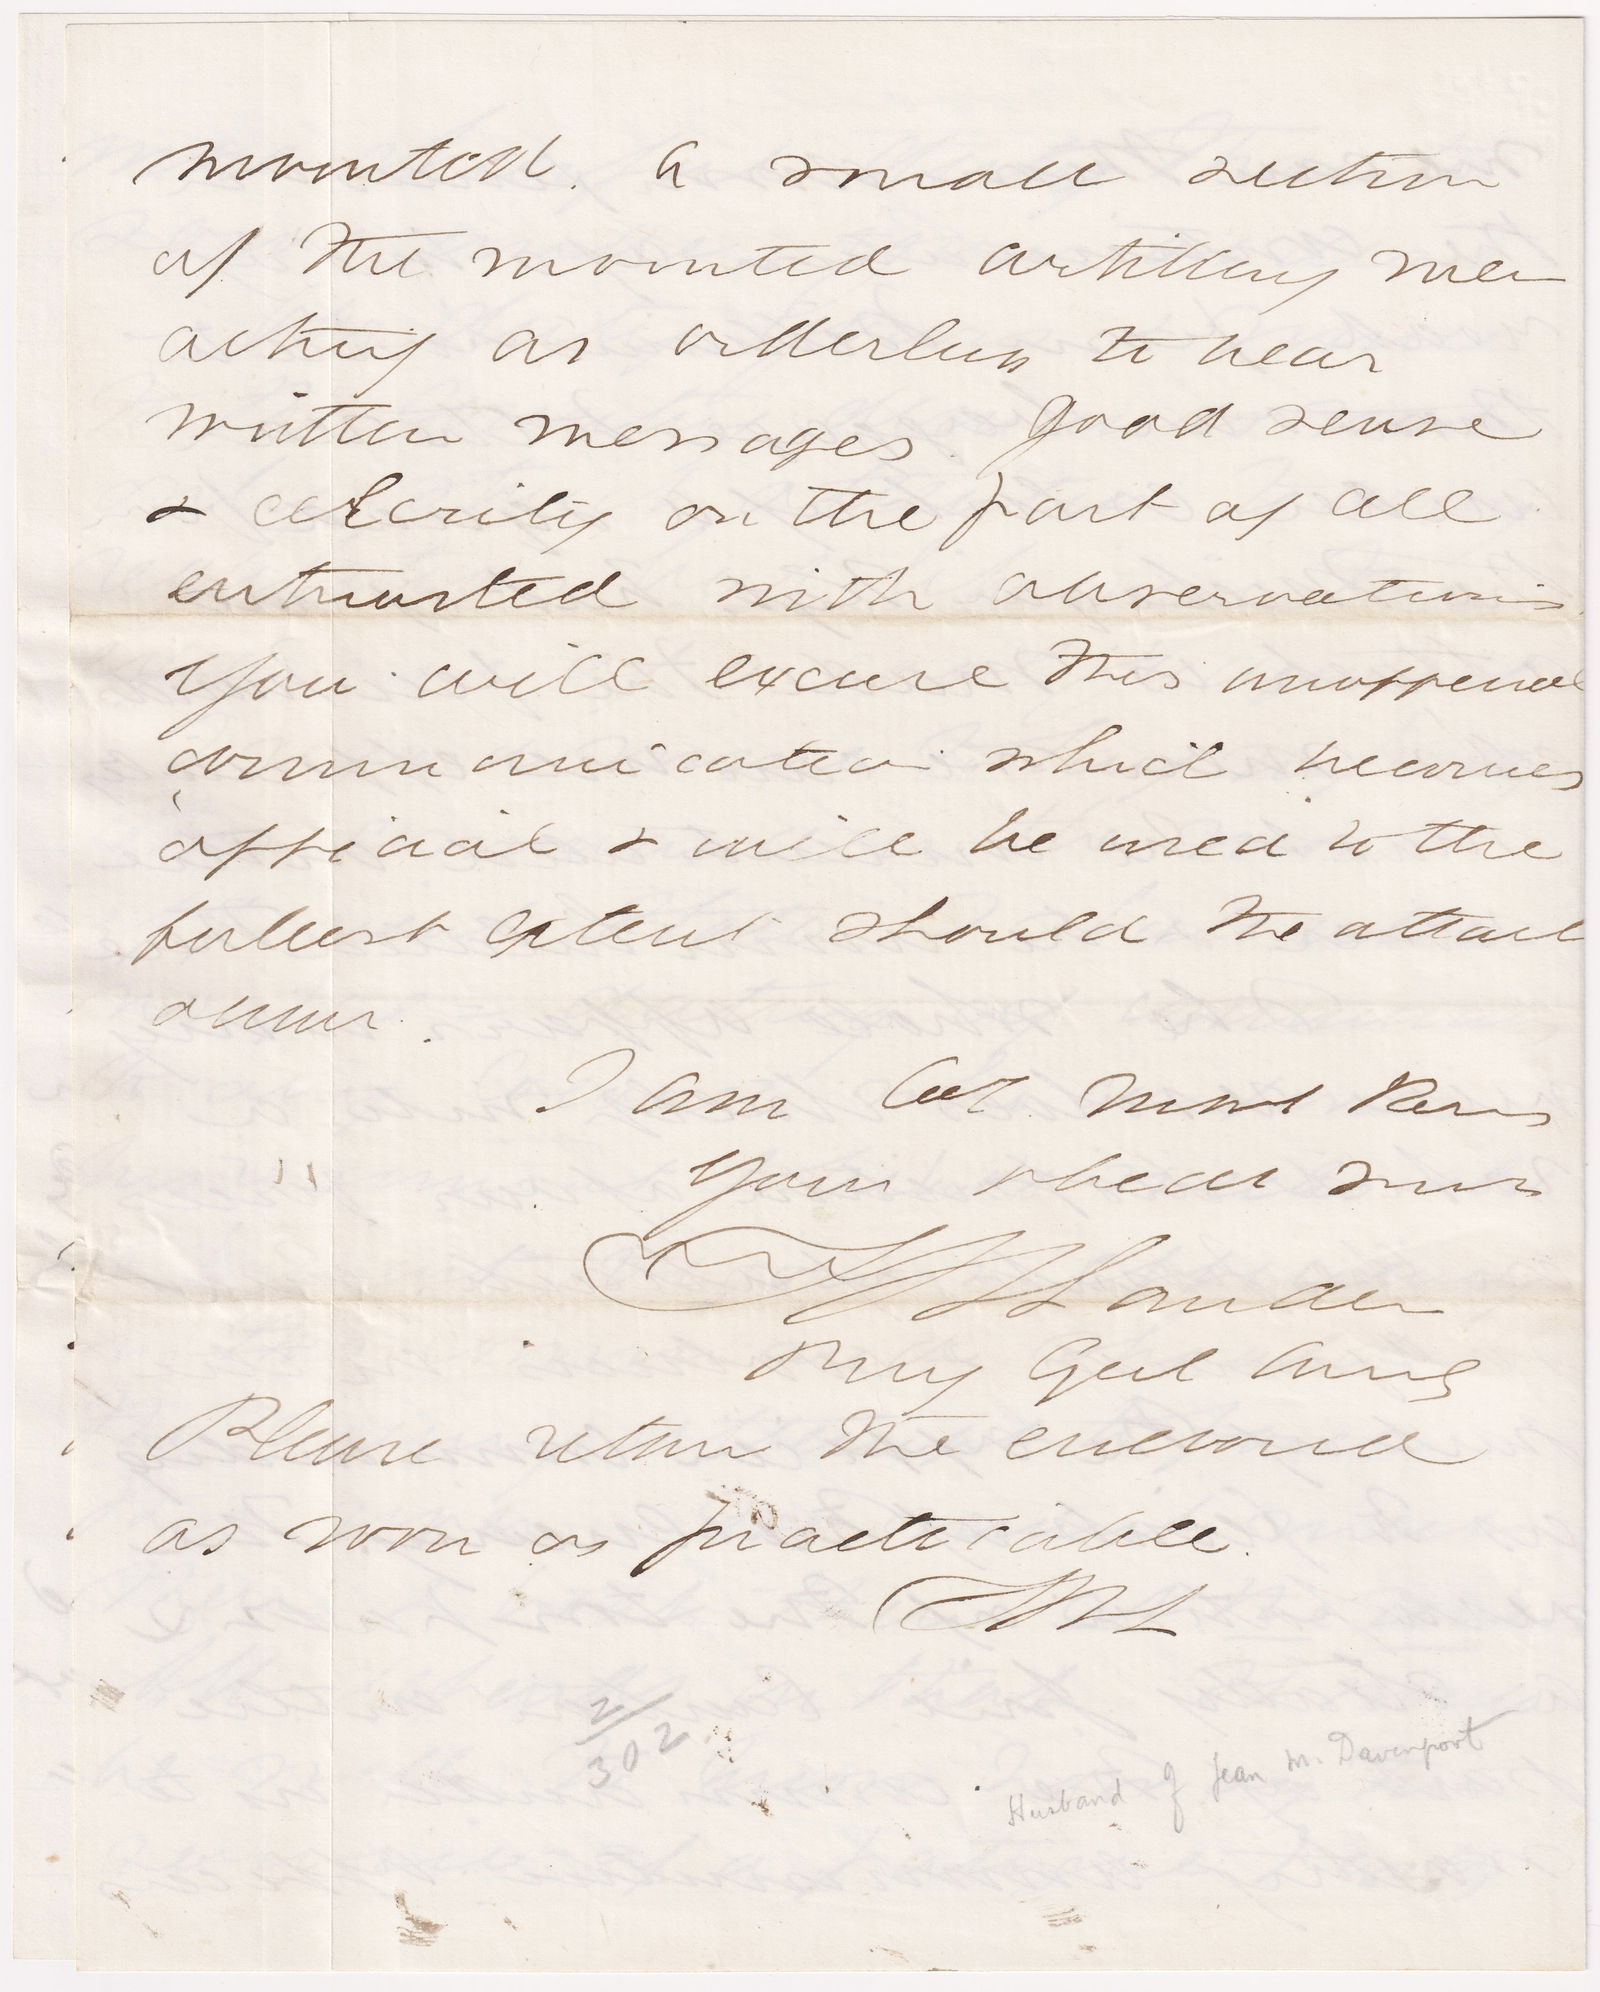 mounted. A small section
of the mounted artillery men
acting as orderlies to bear
written messages. Good sense
& celerity on the part of all
entrusted with observations.
You will excuse this unofficial
communication which becomes
official & will be used to the
fullest extent should the attack
occur.
I am Col. most Res
Your obedt serv
F W Lander
Brig Genl Comg
Please return the enclosed
as soon as practicable.
FWL
2/302
Husband of Jean M. Davenport